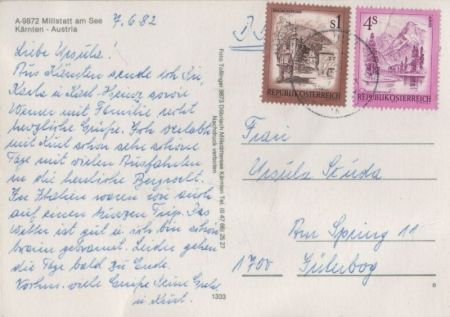 A-9872 Millstatt am See
Kärnten - Austria
7.6.82
Liebe Ursula!
Aus Kärnten sende ich Dir,
Karla u Karl-Heinz sowie
Werner mit Familie recht
herzliche Grüße. Ich verlebte
mit Kurt schon sehr schöne
Tage mit vielen Busfahrten
in die herrliche Bergwelt.
In Italien waren wir auch
auf einen kurzen Trip. Das
Wetter ist gut u. ich bin schön
braun gebrannt. Leider gehen
die Tage bald zu Ende.
viele Grüße Deine
u. Kurt.
Foto Tollinger 9873 Döbriach Millstättersee Kärnten Tel. (0 42 46)
Nachdruck verboten
1333
S1
REPUBLIK ÖSTERREICH
4S
REPUBLIK ÖSTERREICH
Frau
Ursula
Am Spring 11
1700 Jüterbog